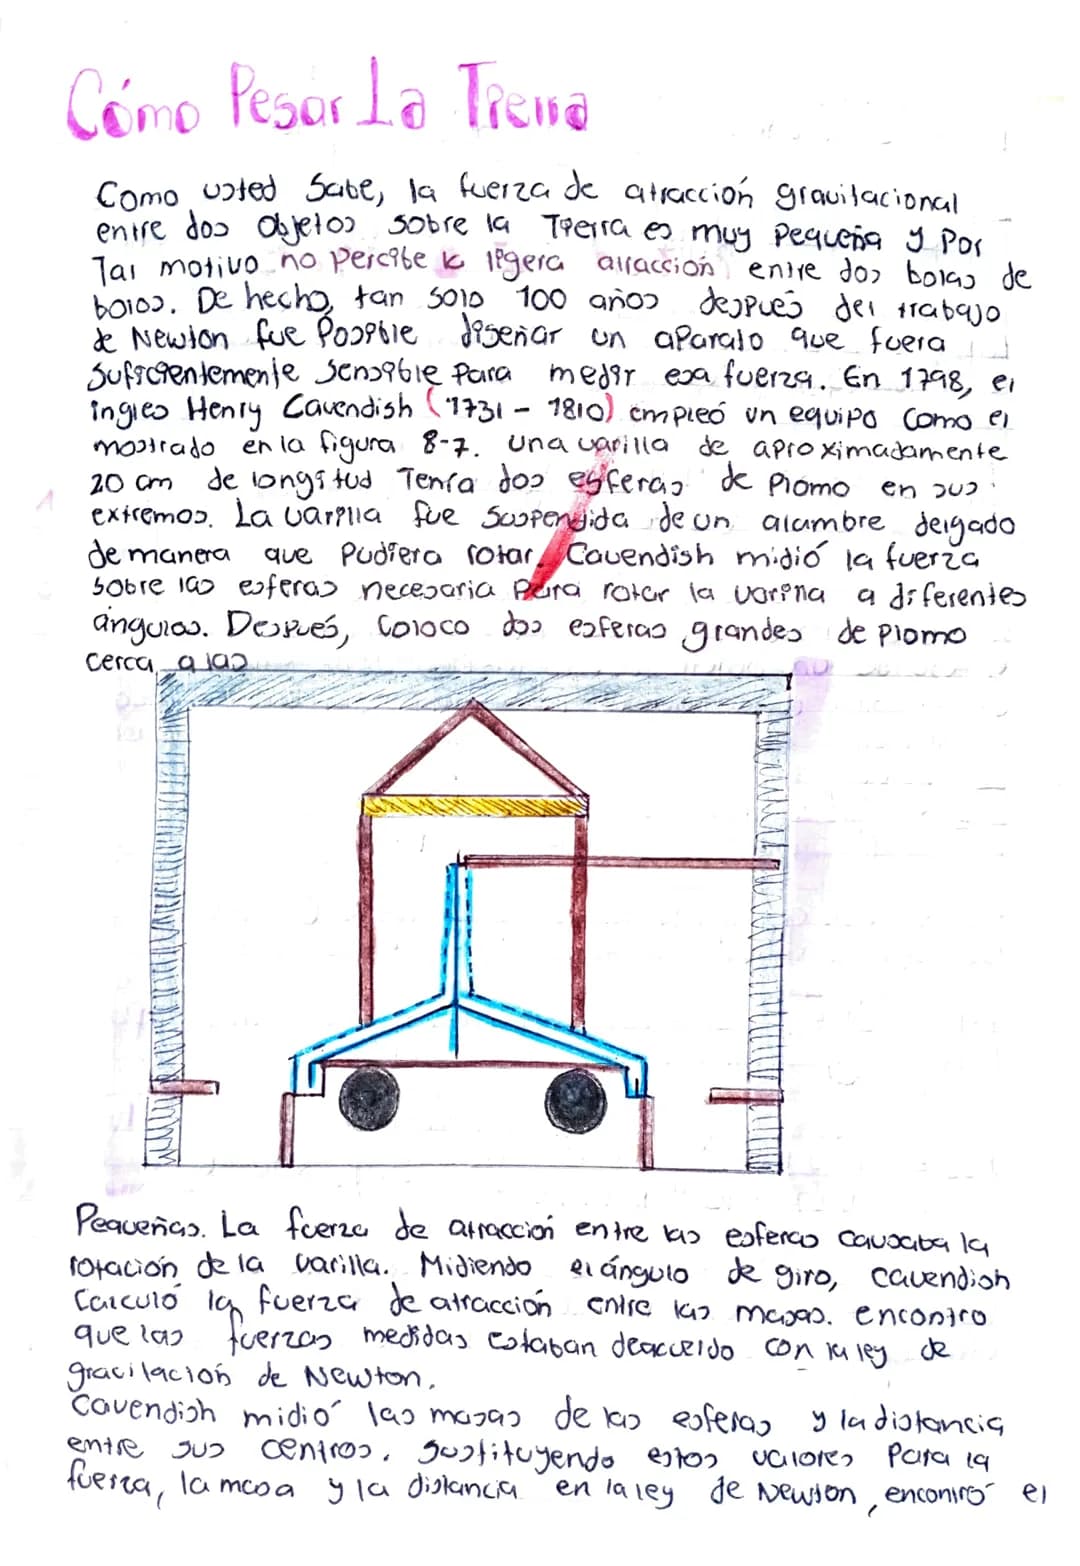 Cómo Pesar La Tierra
Como usted Sabe, la fuerza de atracción gravitacional
entre dos Objetos sobre la Tierra es muy Pequeña y Por
Tal motivo no percibe la ligera atracción entre dos bolas de
bolos. De hecho, tan solo 100 años después del trabajo
de Newton fue Posible diseñar un aparato que fuera
Suficientemente Sensible para medir esa fuerza. En 1798, el
ingles Henry Cavendish (1731 - 1810) empleó un equipo Como el
mostrado en la figura 8-7. una varilla de aproximadamente
20 cm de longitud Tenía dos esferas de Plomo en sus
extremos. La varilla fue Suspendida de un alambre delgado
de manera que Pudiera rotar. Cavendish midió la fuerza
sobre las esferas necesaria Para rotar la varilla a diferentes
ángulos. Después, Coloco dos esferas grandes de Plomo
cerca a las
Pequeñas. La fuerza de atracción entre las esferas causaba la
rotación de la varilla. Midiendo el ángulo de giro, Cavendish
Calculó la fuerza de atracción entre las masas. encontro
que las fuerzas medidas estaban deacuerdo con la ley de
gravitación de Newton.
Cavendish midió las masas de las esferas y la distancia
entre sus centros. Sustituyendo estos valores Para la
fuerza, la masa y la distancia en la ley de Newton, encontró el